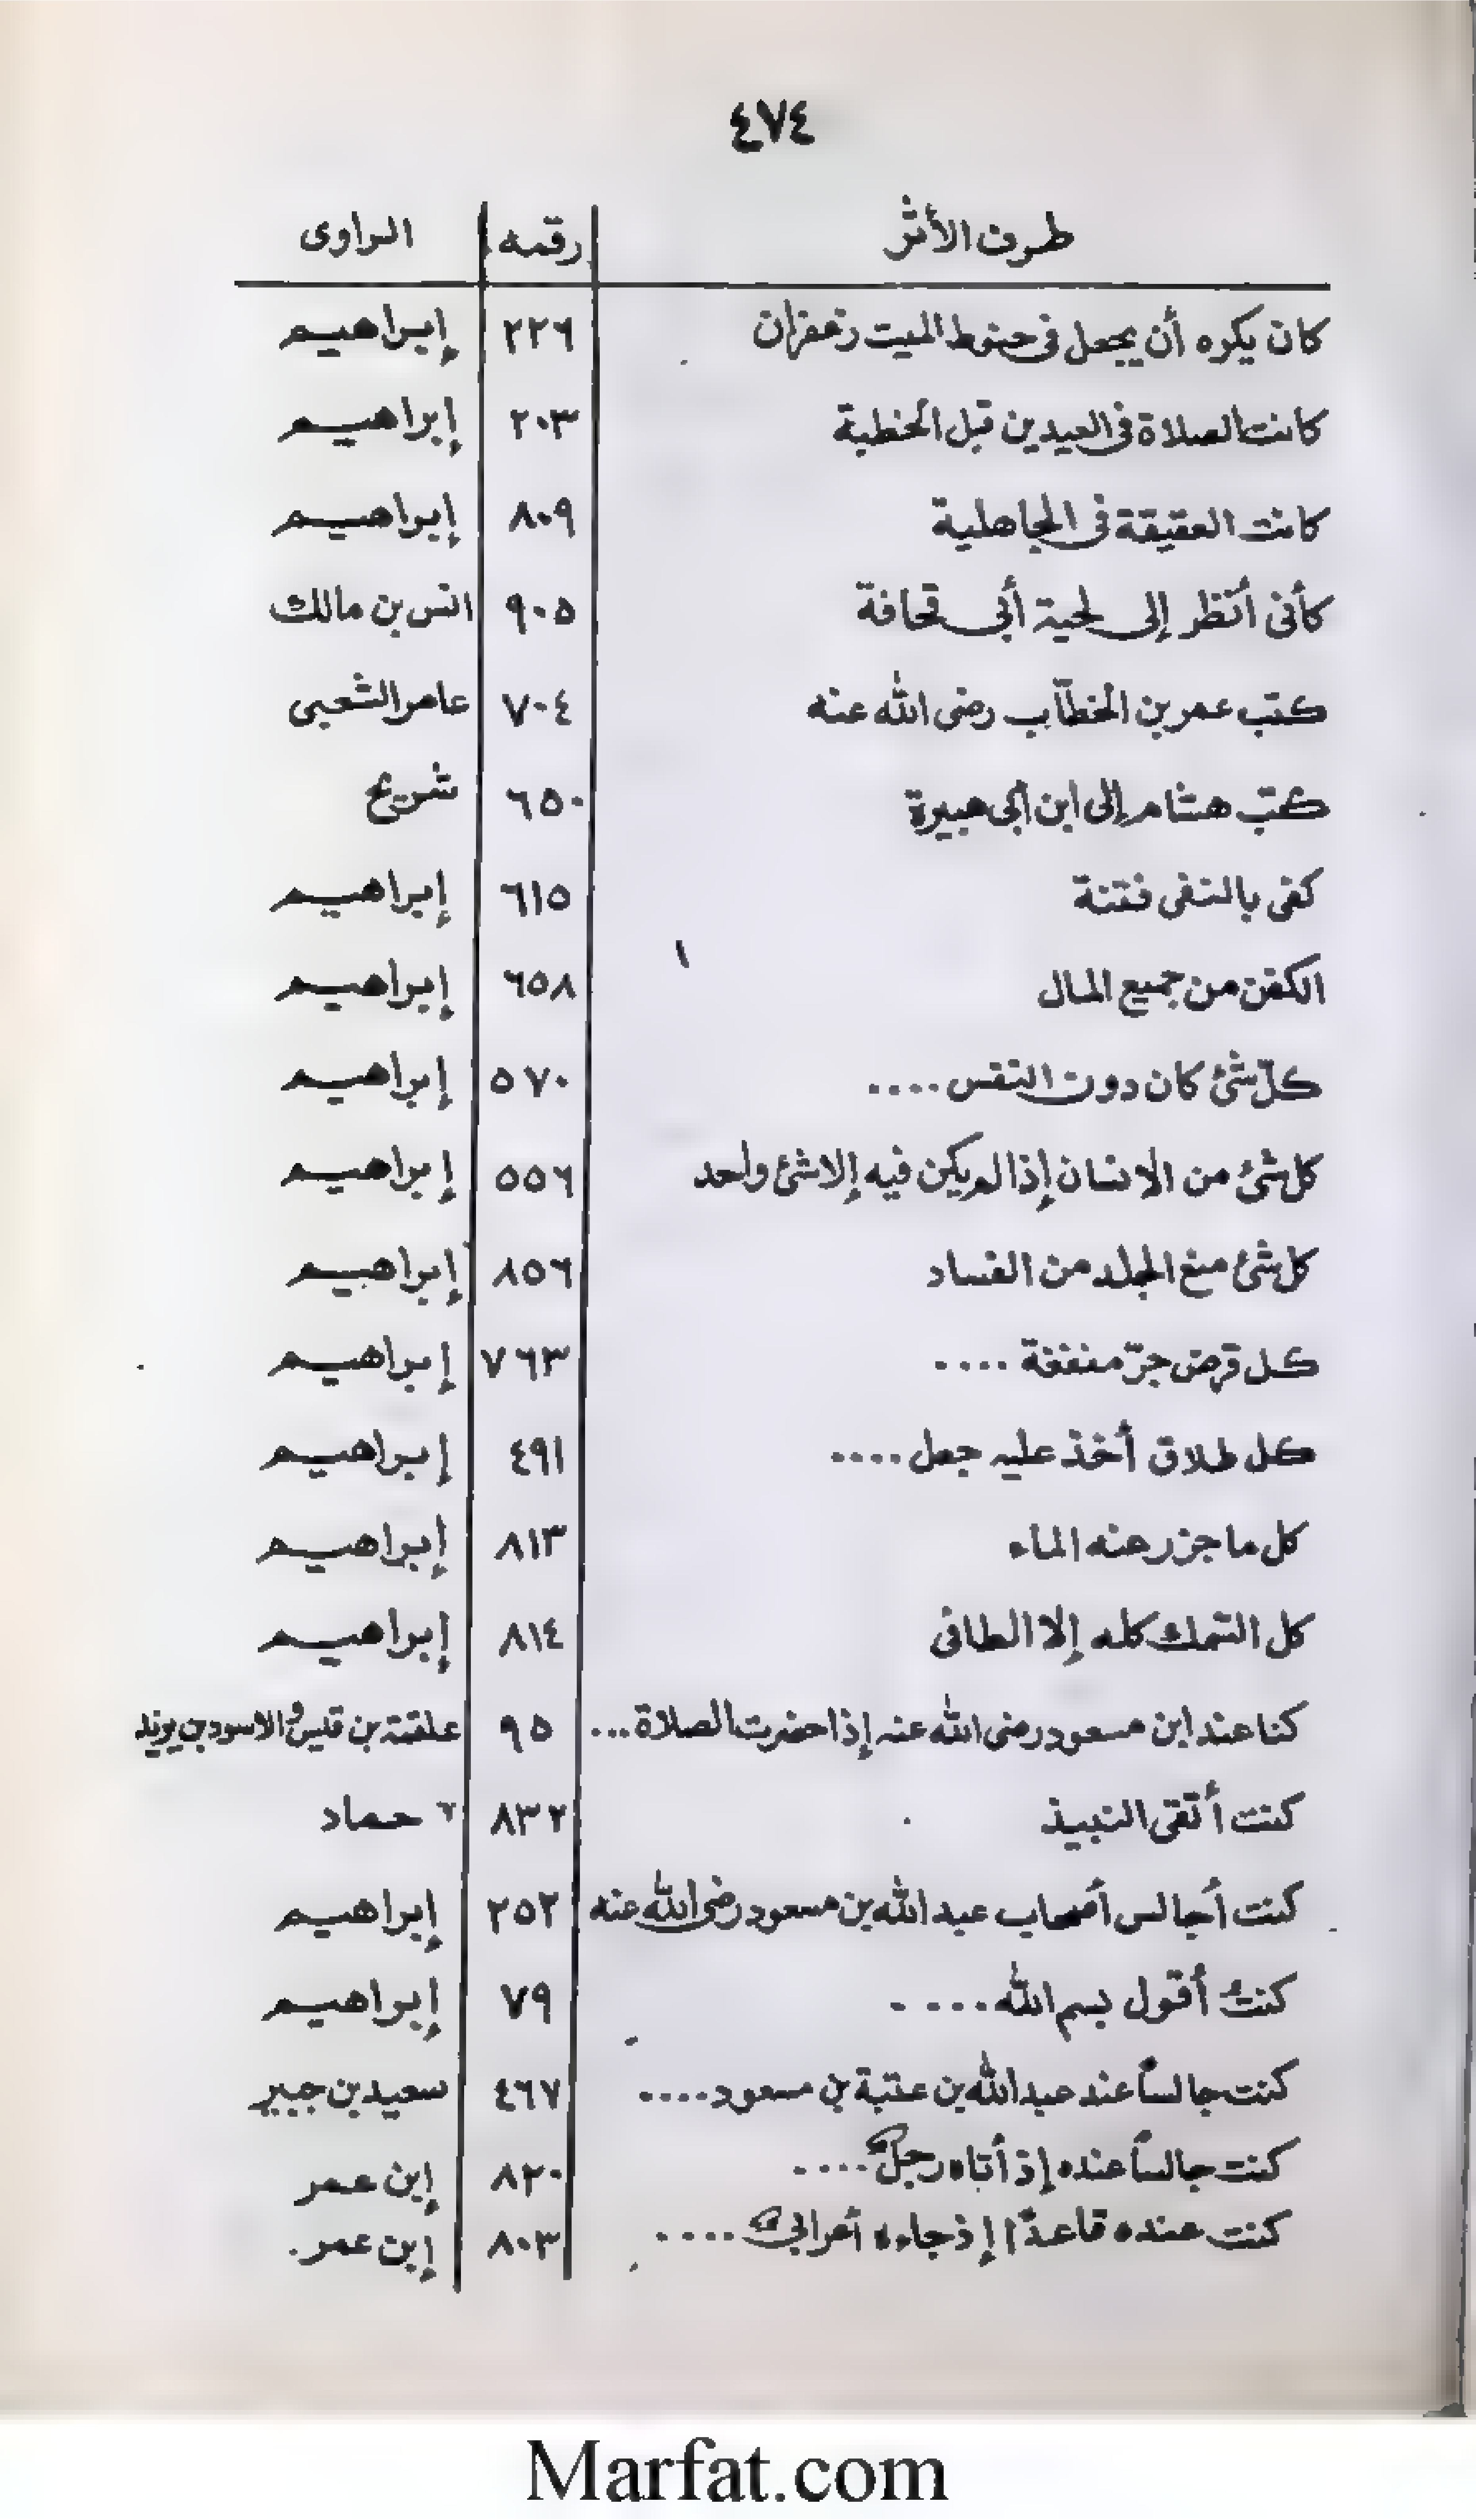 ٤٧٤
طرف الأثر رقمه الراوى
كان يكره أن يجعل فى حنوط الميت زعفران ٢٢٦ إبراهيم
كانت الصلاة فى العيدين قبل الخطبة ٢٠٣ إبراهيم
كانت العقيقة فى الجاهلية ٨٠٩ إبراهيم
كأنى أنظر إلى لحية أبى قحافة ٩٠٥ انس بن مالك
كتب عمر بن الخطّاب رضى الله عنه ٧٠٤ عامر الشعبى
كتب هشام إلى ابن ابى هبيرة ٦٥٠ شريح
كفى بالنفى فتنة ٦١٥ إبراهيم
الكفن من جميع المال ٦٥٨ إبراهيم
كلّ شئ كان دون النفس .... ٥٧٠ إبراهيم
كل شئ من الانسان إذا لم يكن فيه إلا شئ واحد ٥٥٦ إبراهيم
كل شئ منع الجلد من الفساد ٨٥٦ إبراهيم
كل قرض جرّ منفعة .... ٧٦٣ إبراهيم
كل طلاق أخذ عليه جعل .... ٤٩١ إبراهيم
كل ما جزر عنه الماء ٨١٣ إبراهيم
كل السّمك كله إلا الطافى ٨١٤ إبراهيم
كنا عند ابن مسعود رضى الله عنه إذا حضرت الصلاة ... ٩٥ علقمة بن قيس والاسود بن يزيد
كنت أتقى النبيذ ٨٣٢ حماد
كنت أجالس أصحاب عبد الله بن مسعود رضى الله عنه ٢٥٢ إبراهيم
كنتُ أقول بسم الله .... ٧٩ إبراهيم
كنت جالساً عند عبد الله بن عتبة بن مسعود .... ٤٦٧ سعيد بن جبير
كنت جالساً عنده إذ أتاه رجلٌ .... ٨٢٠ إبن عمر
كنت عنده قاعدًا إذ جاءه أعرابى .... ٨٠٣ إبن عمر.
Marfat.com